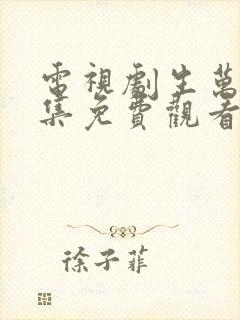 電視劇生萬
集免費觀看
徐子菲